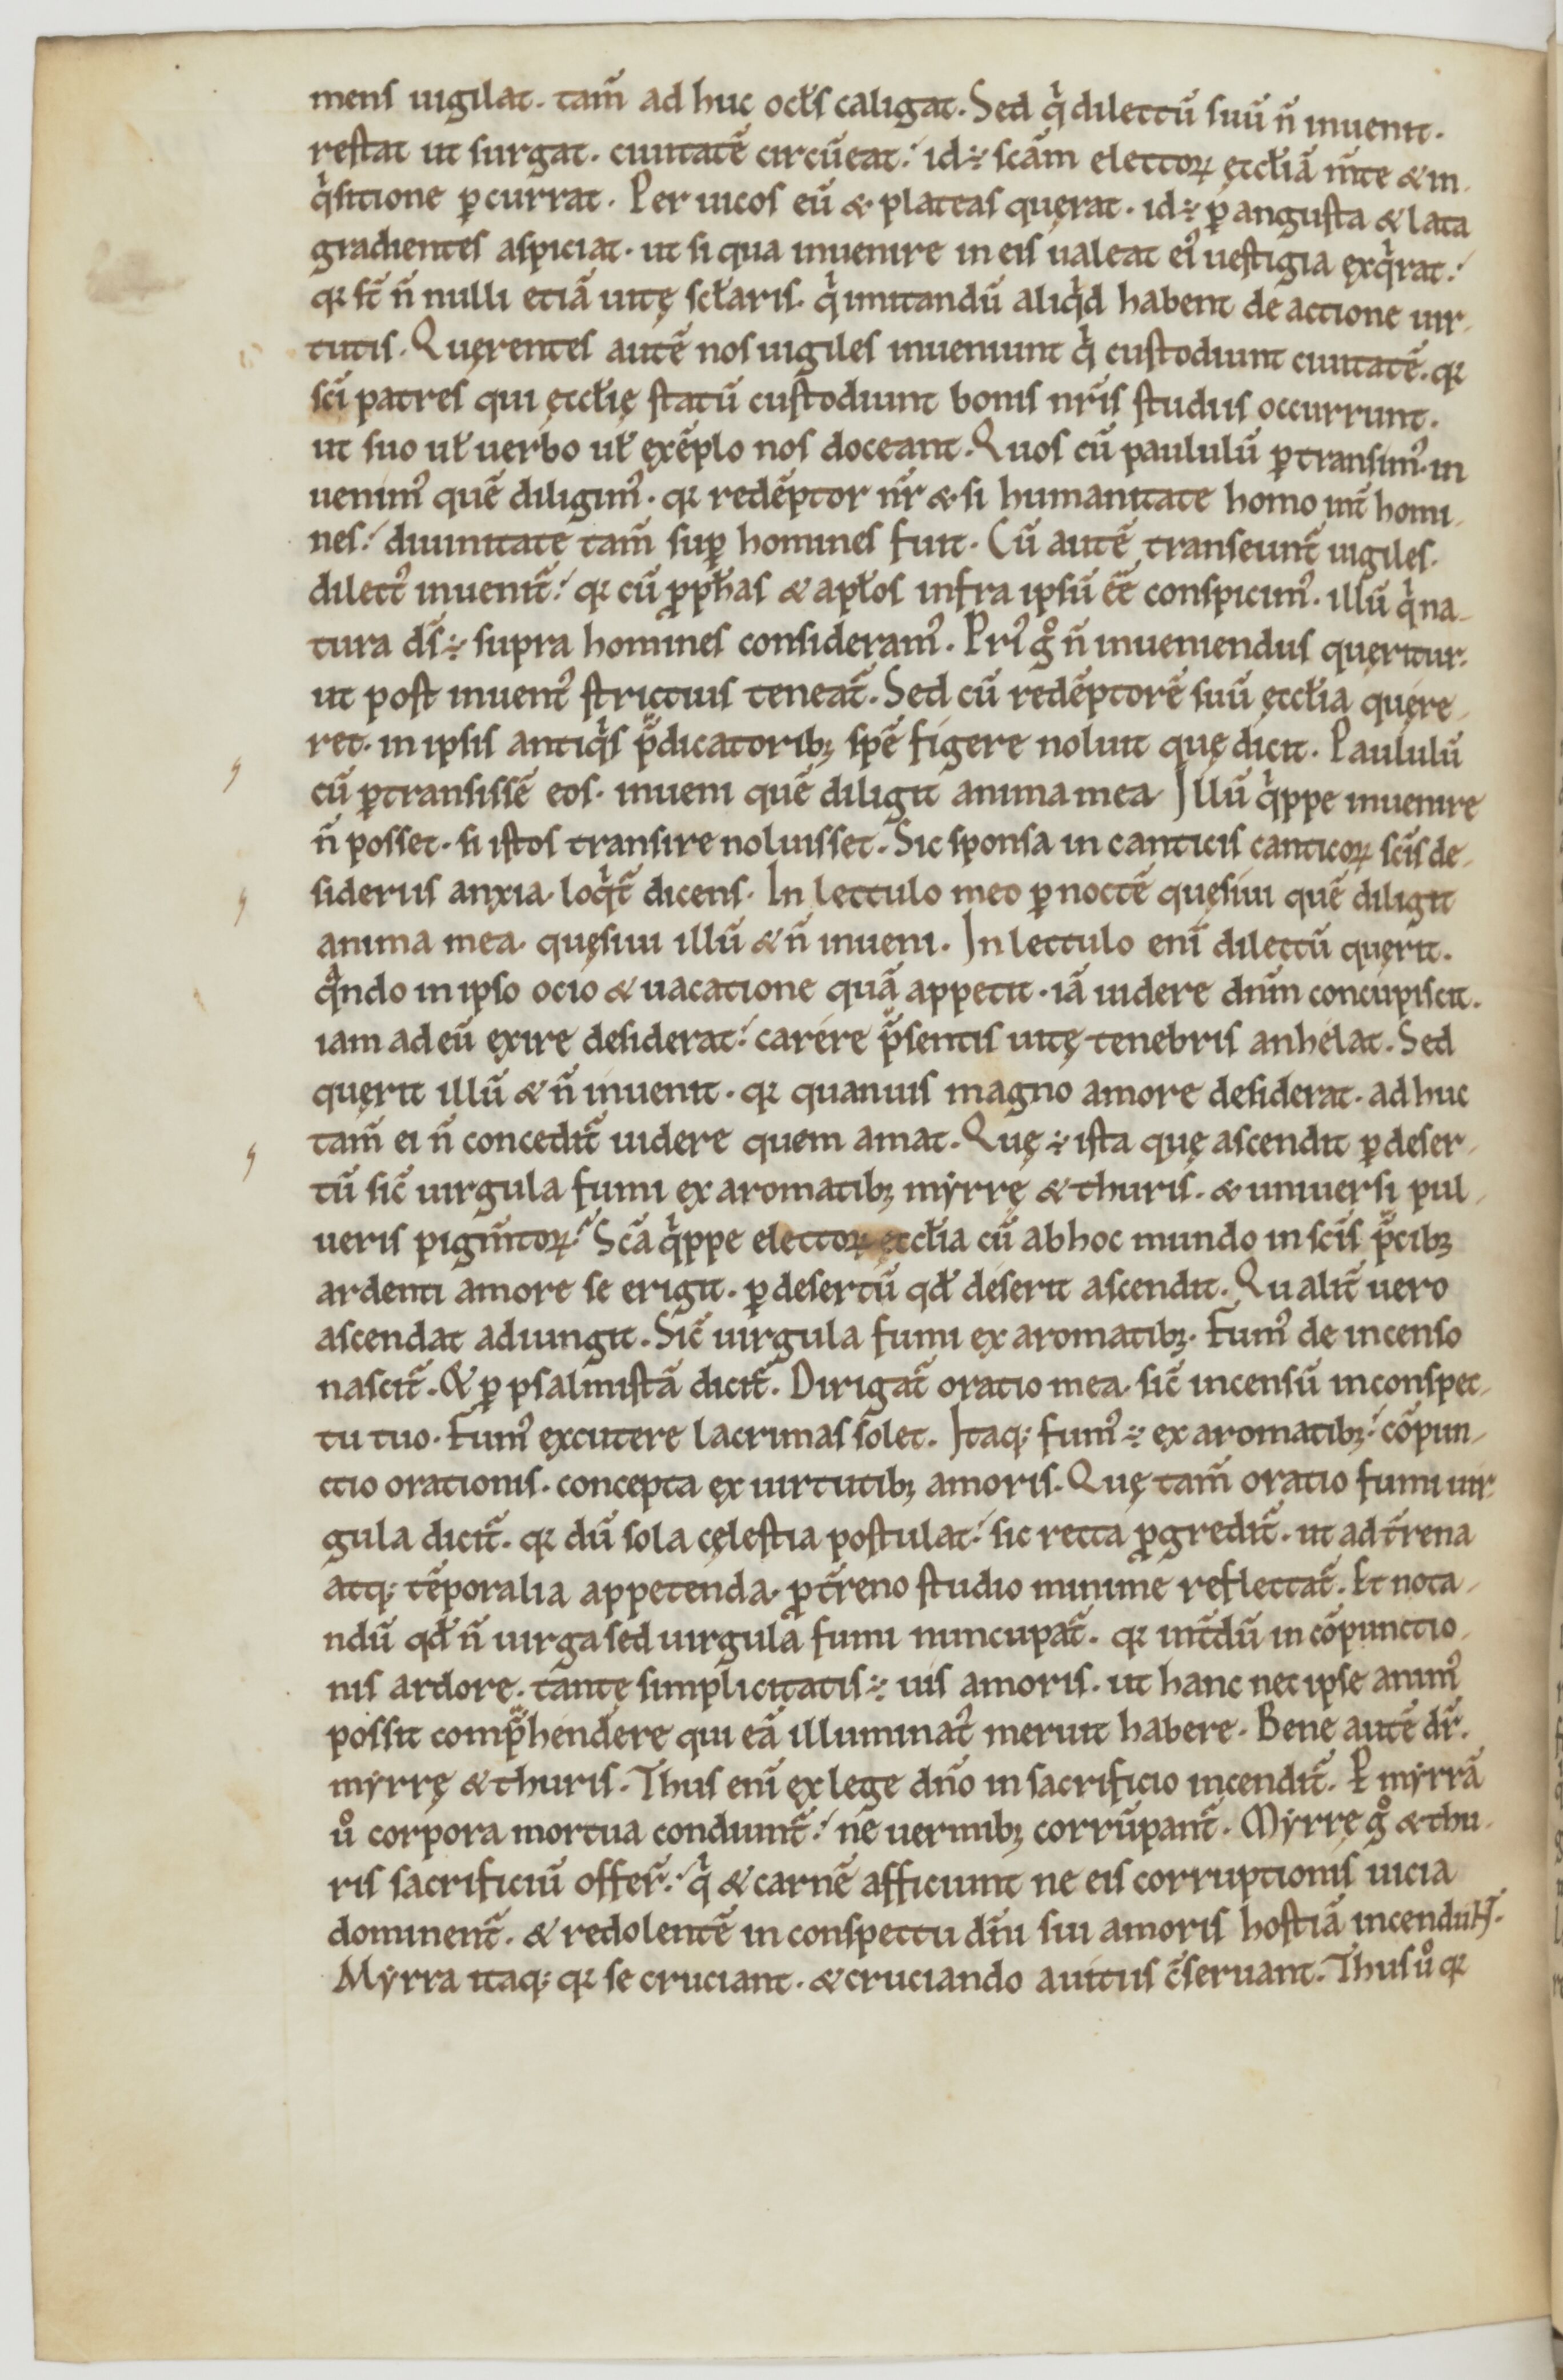 mens uigilat. tam̅ ad huc ocl̕s caligat. Sed qͥ dilectu̅ suu̅ n̅ inuenit.
restat ut surgat. ciuitate̅ circu̅eat. id ÷ sc̅am electoꝝ ęccl̕ia̅ m̅te & in-
qͥsitione ꝑcurrat. Per uicos eu̅ & plateas quęrat. id ÷ ꝑ angusta & lata
gradientes aspiciat. ut si qua inuenire in eis ualeat ei᷒ uestigia exqͥrat.
qꝛ st̅ n̅ nulli etia̅ uitę scl̕aris. qͥ imitandu̅ aliqͥd habent de actione uir-
tutis. Quęrentes aute̅ nos uigiles inueniunt qͥ custodiunt ciuitate̅. qꝛ
sc̅i patres qui ęccl̕ię statu̅ custodiunt bonis nr̅is studiis occurrunt.
ut suo ul̕ uerbo ul̕ exe̅plo nos doceant. Quos cu̅ paululu̅ ꝑtransim᷒. in
uenim᷒ que̅ diligim᷒. qꝛ rede̅ptor nr̅ & si humanitate homo int̅ homi-
nes. diuinitate tam̅ suꝑ homines fuit. Cu̅ aute̅ transeunt̅ uigiles.
dilect᷒ inuenit̅. qꝛ cu̅ ꝓph̕as & apl̕os infra ipsu̅ e̅e̅ conspicim᷒. illu̅ qͥ na-
tura ds̅ ÷ supra homines consideram᷒. Pri᷒ gͦ n̅ inueniendus quęritur.
ut post inuent᷒ strictius teneat̅. Sed cu̅ rede̅ptore̅ suu̅ ęccl̕ia quęre-
ret. in ipsis antiqͥs p̅dicatorib; spe̅ figere noluit quę dicit. Paululu̅
cu̅ ꝑtransisse̅ eos. inueni que̅ diligit anima mea. Illu̅ qͥppe inuenire
n̅ posset. si istos transire noluisset. Sic sponsa in canticis canticoꝝ sc̅is de-
sideriis anxia. loqͥt̅ dicens. In lectulo meo ꝑ nocte̅ quęsiui que̅ diligit
anima mea. quęsiui illu̅ & n̅ inueni. In lectulo eni̅ dilectu̅ quęrit.
qͣndo in ipso ocio & uacatione qua̅ appetit. ia̅ uidere dn̅m concupiscit.
iam ad eu̅ exire desiderat. carere p̅sentis uitę tenebris anhelat. Sed
quęrit illu̅ & n̅ inuenit. qꝛ quanuis magno amore desiderat. ad huc
tam̅ ei n̅ concedit̅ uidere quem amat. Quę ÷ ista quę ascendit ꝑ deser-
tu̅ sic̅ uirgula fumi ex aromatib; myrrę & thuris. & uniuersi pul-
ueris pigm̅toꝝ. Sc̅a qͥppe electoꝝ ęccl̕ia cu̅ ab hoc mundo in sc̅is p̅cib;
ardenti amore se erigit. ꝑ desertu̅ qd̕ deserit ascendit. Qualit̅ uero
ascendat adiungit. Sic̅ uirgula fumi ex aromatib;. Fum᷒ de incenso
nascit̅. & ꝑ psalmista̅ dicit̅. Dirigat̅ oratio mea. sic̅ incensu̅ in conspec-
tu tuo. Fum᷒ excutere lacrimas solet. Itaq; fum᷒ ÷ ex aromatib;. co̅pun-
ctio orationis. concepta ex uirtutib; amoris. Quę tam̅ oratio fumi uir-
gula dicit̅. qꝛ du̅ sola cęlestia postulat. sic recta ꝓgredit̅. ut ad t̅rena
atq; te̅poralia appetenda. ꝓ t̅reno studio minime reflectat̅. Et nota-
ndu̅ qd̕ n̅ uirga sed uirgula fumi nuncupat̅. qꝛ int̅du̅ in co̅punctio-
nis ardore. tantę simplicitatis ÷ uis amoris. ut hanc nec ipse anim᷒
possit comp̅hendere qui ea̅ illuminat᷒ meruit habere. Bene aute̅ dr̅.
myrrę & thuris. Thus eni̅ ex lege dn̅o in sacrificio incendit̅. P myrra̅
uͦ corpora mortua condiunt̅. ne uermib; corru̅pant̅. Myrrę gͦ & thu-
ris sacrificiu̅ offer̅. qͥ & carne̅ afficiunt ne eis corruptionis uicia
dominent̅. & redolente̅ in conspectu dn̅i sui amoris hostia̅ incendunt.
Myrra itaq; qꝛ se cruciant. & cruciando a uitiis c̅seruant. Thus uͦ qꝛ